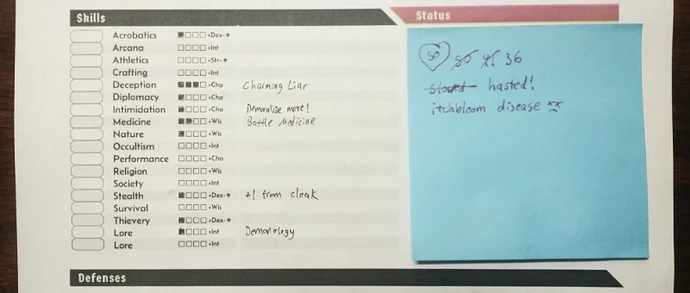 Skills
Status
Acrobatics +Dex-*
Arcana +Int
Athletics +Str-*
Crafting +Int
Deception +Cha Charming Liar
Diplomacy +Cha
Intimidation +Cha Demoralize more!
Medicine +Wis Battle Medicine
Nature +Wis
Occultism +Int
Performance +Cha
Religion +Wis
Society +Int
Stealth +Dex-* +1 from cloak
Survival +Wis
Thievery +Dex-*
Lore +Int Demonology
Lore +Int
50 50 41 36
Slowed hasted!
itchbloom disease
Defenses